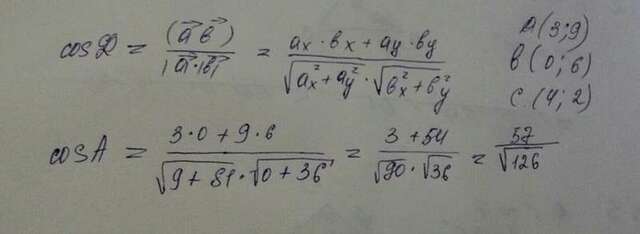 cos φ = (a⃗ b⃗) / |a⃗|·|b⃗| = ax · bx + ay · by / √ax² + ay² · √bx² + by²
A(3;9)
B(0;6)
C.(4;2)
cos A = 3·0 + 9·6 / √9 + 81 · √0 + 36 = 3 + 54 / √90 · √36 = 57 / √126